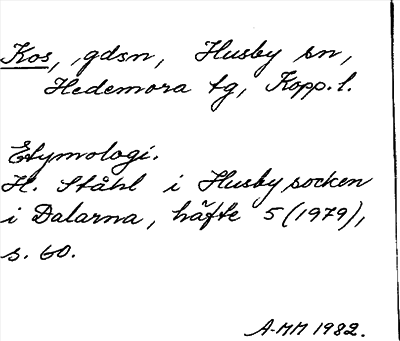 Kos, gdsn, Husby sn,
Hedemora tg, Kopp. l.
Etymologi.
H. Ståhl i Husby socken
i Dalarna, häfte 5 (1979),
s. 60.
A-MM 1982.